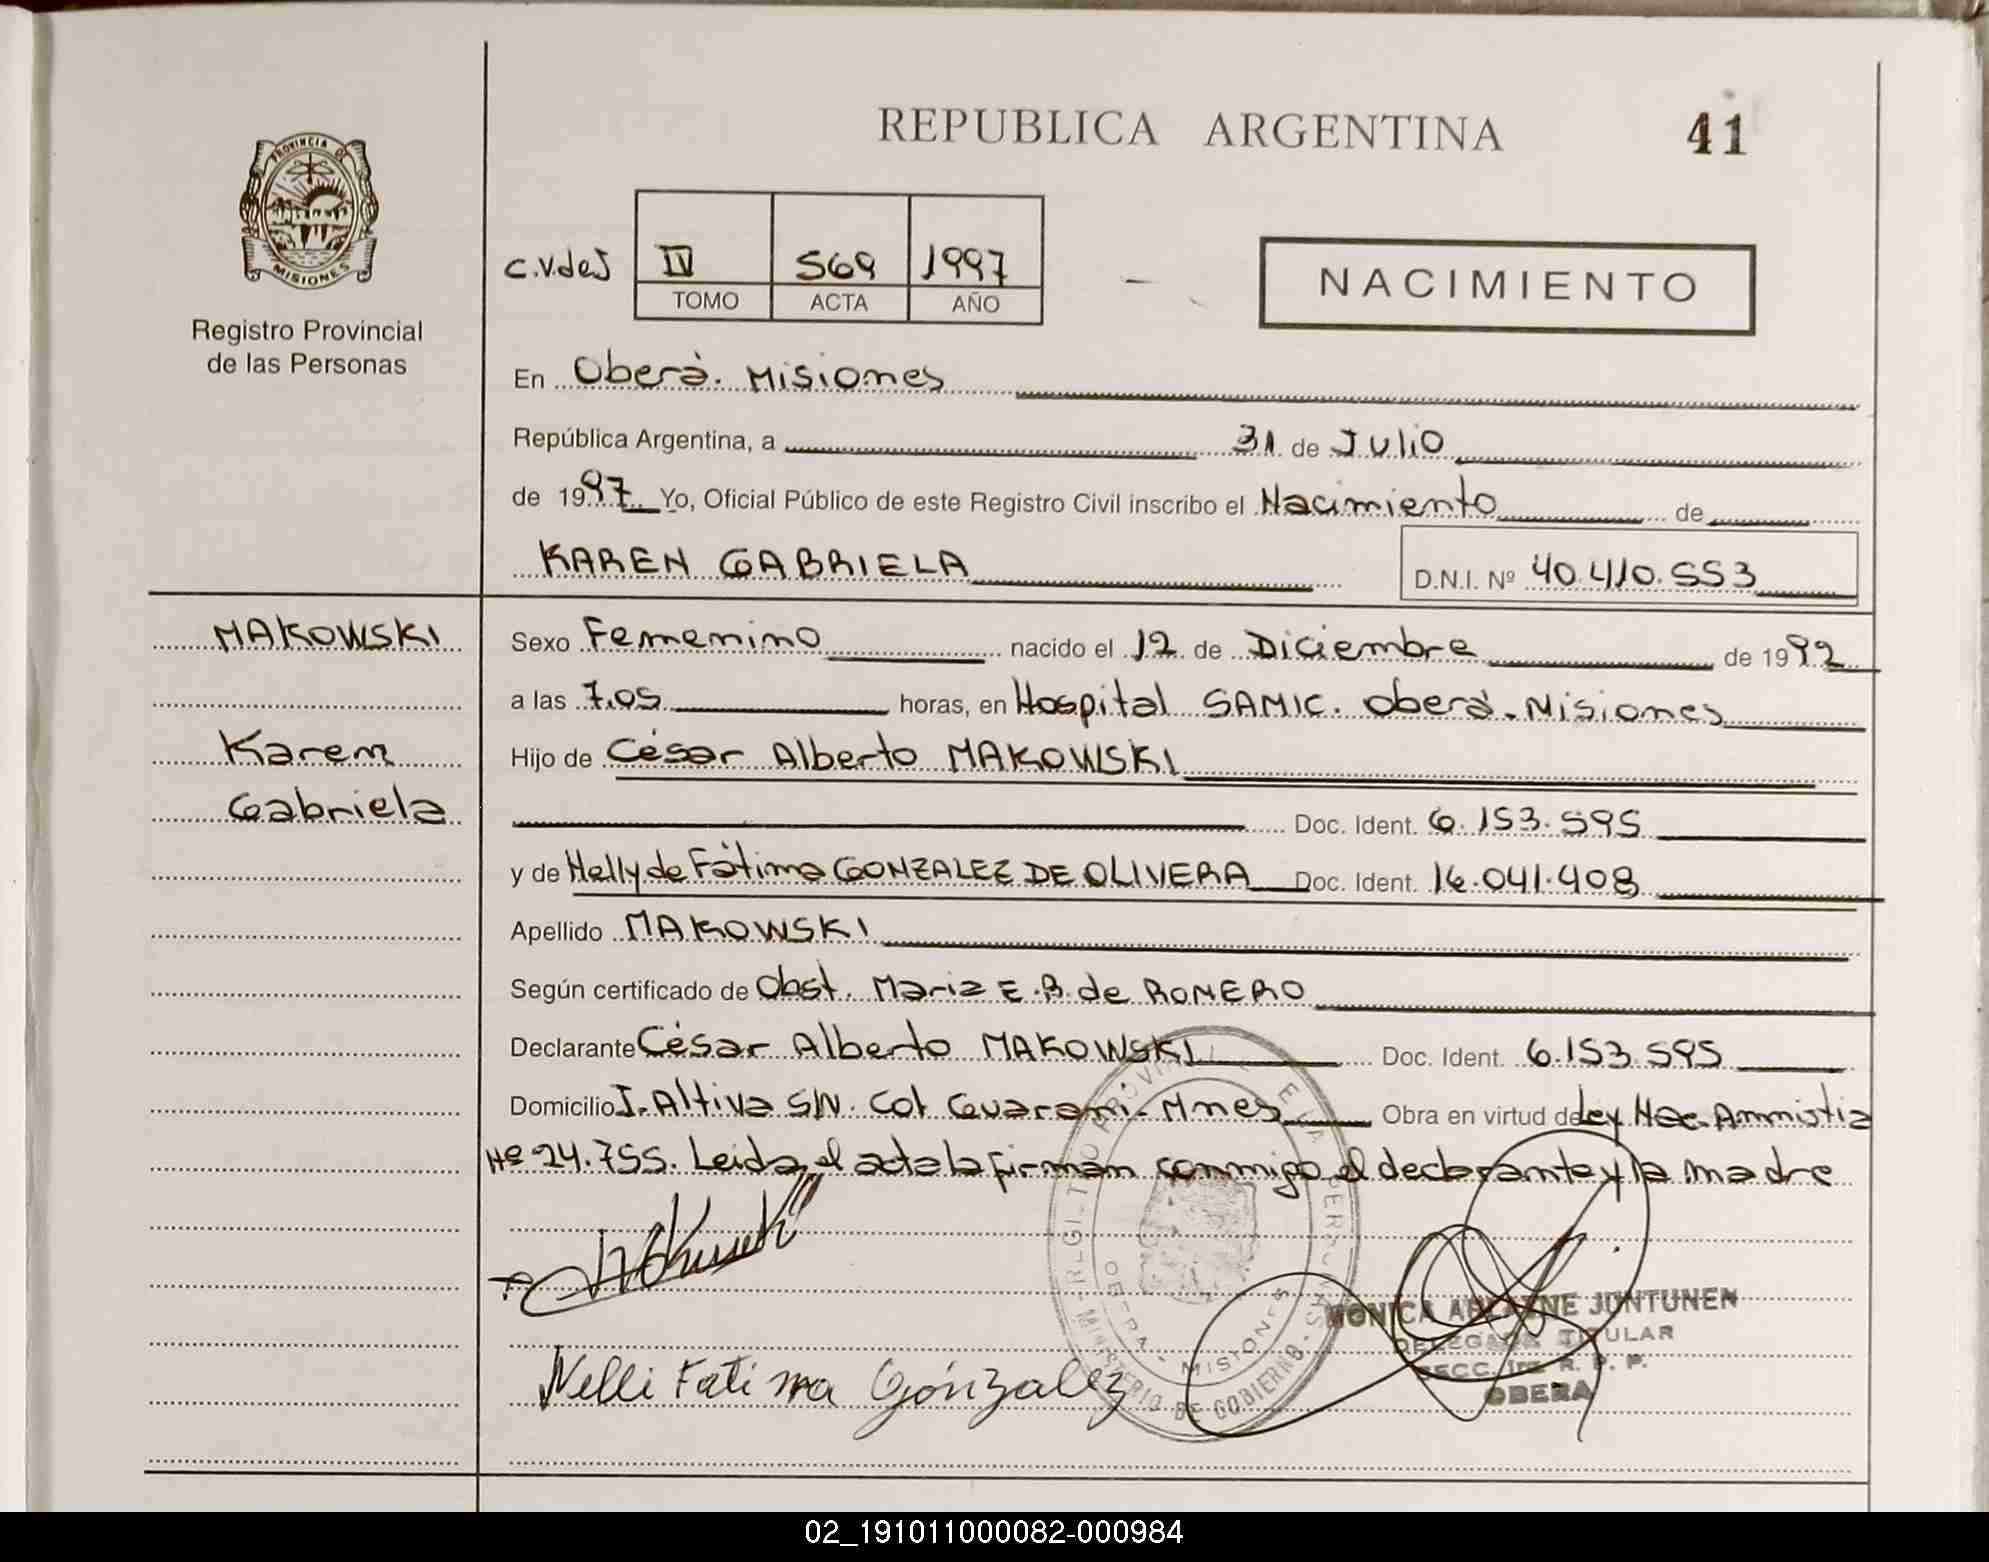 REPUBLICA ARGENTINA
41
PROVINCIA DE
MISIONES
Registro Provincial
de las Personas
C.V.deJ
IV 569 1997
TOMO ACTA AÑO
NACIMIENTO
En Oberá. Misiones
República Argentina, a 31 de Julio
de 1997 Yo, Oficial Público de este Registro Civil inscribo el Nacimiento de
KAREN GABRIELA
D.N.I. Nº 40.410.553
MAKOWSKI
Karen
Gabriela
Sexo Femenino nacido el 12 de Diciembre de 1992
a las 7.05 horas, en Hospital SAMIC. Oberá. Misiones
Hijo de César Alberto MAKOWSKI
Doc. Ident. 6.153.595
y de Nelly de Fátima GONZALEZ DE OLIVERA Doc. Ident. 16.041.408
Apellido MAKOWSKI
Según certificado de Obst. Maria E.B. de ROMERO
Declarante César Alberto MAKOWSKI Doc. Ident. 6.153.595
Domicilio I. Altiva S/N. Col Guarani. Mnes Obra en virtud de Ley Nac. Amnistia
Nº 24.755. Leida el acta la firman conmigo el declarante y la madre
Nelli Fatima Gónzalez
OBERA - MISIONES
MINISTERIO DE GOBIERNO
MONICA ARLAENE JUNTUNEN
DELEGADA TITULAR
SECC. 1ra R. P. P.
OBERA
02_191011000082-000984